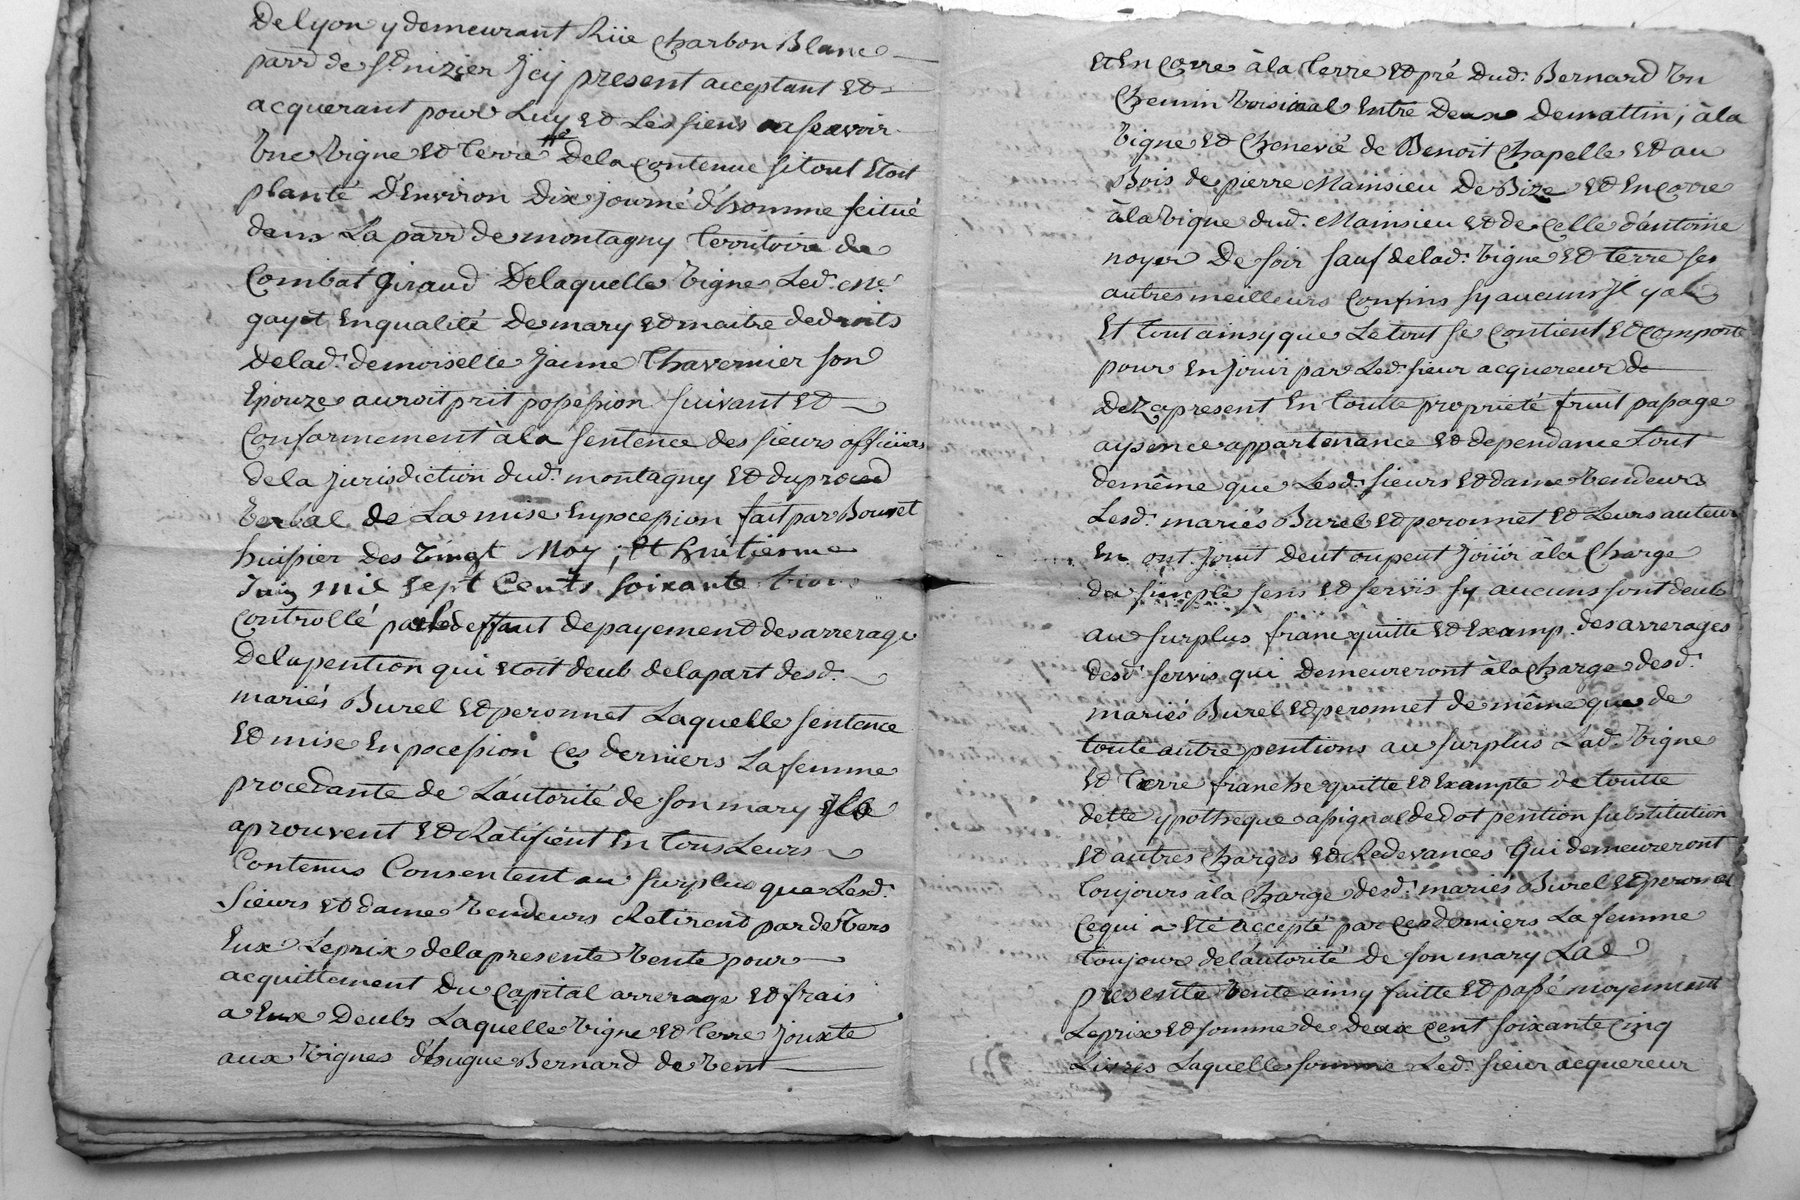 De lyon y demeurant Rüe Charbon Blanc
parr de St nizier Jcy present acceptant Et
acquerant pour Luy Et Les siens a scavoir
Vne Vigne Et terre De la Contenue si tout Etoit
planté d'Environ Dix journé d'homme scitué
dans La parr de montagny territoire de
Combat Giraud De laquelle Vigne Led. Me.
gayet En qualité De mary Et maitre de droits
De lad. demoiselle jeanne thavernier son
Epouze auroit prit possession suivant Et
Conformement à la sentence des sieurs officiers
de la jurisdiction dud. montagny Et du proced
Verbal de La mise En pocession fait par Bounet
huissier des Vingt May, Et huitienme
Juin mil sept Cents soixante trois
Controllé par le deffaut de payement des arrerage
De la pention qui Etoit deub de la part desd.
mariés Burel Et peronnet Laquelle sentence
Et mise En pocession Ces derniers La femme
procedante de L'autorité de son mary Jls
aprouvent Et Ratifient En tous Leurs
Contenus Consentent au surplus que Lesd.
Sieurs Et dame Vendeurs Retirent par de Vers
Eux Le prix de la presente Vente pour
acquittement Du Capital arrerage Et frais
a Eux Deubs Laquelle Vigne Et terre jouxte
aux Vignes d'hugue Bernard de Vent
Et Encorre à la terre Et pré Dud. Bernard Vn
Chemin Voisinal Entre Deux De mattin; à la
Vigne Et Chenevié de Benoit Chapelle Et au
Bois de pierre Mainsieu De Bize Et Encorre
à la Vigne dud. Mainsieu Et de Celle d'antoine
noyer De soir sauf de lad. Vigne Et terre ses
autres meilleurs Confins sy aucuns Jl y a
Et tout ainsy que Le tout se Contient Et Comporte
pour En jouir par Led. sieur acquereur de
Dez a present En toutte proprieté fruit passage
aysence appartenance Et dependance tout
de même que Lesd. sieurs Et dame Vendeurs
Lesd. mariés Burel Et peronnet Et Leurs auteur
En ont jouit deut ou peut joüir à la Charge
du simple sens Et servis sy aucuns sont deub
au surplus franc quitte Et Examp. des arrerages
desd. servis qui Demeureront à la Charge desd.
mariés Burel Et peronnet de même que de
toute autre pentions au surplus Lad. Vigne
Et terre franche quitte Et Exampte de toutte
dette ypotheque assignal de dot pention substitution
Et autres Charges Et Redevances Qui demeureront
toujours a la Charge desd. mariés Burel Et peronnet
Ce qui a Eté accepté par Ces derniers La femme
toujours de l'autorité de son mary La
presente Vente ainsy faitte Et passé moyennent
Le prix Et somme de Deux Cent soixante Cinq
Livres Laquelle somme Led. sieur acquereur